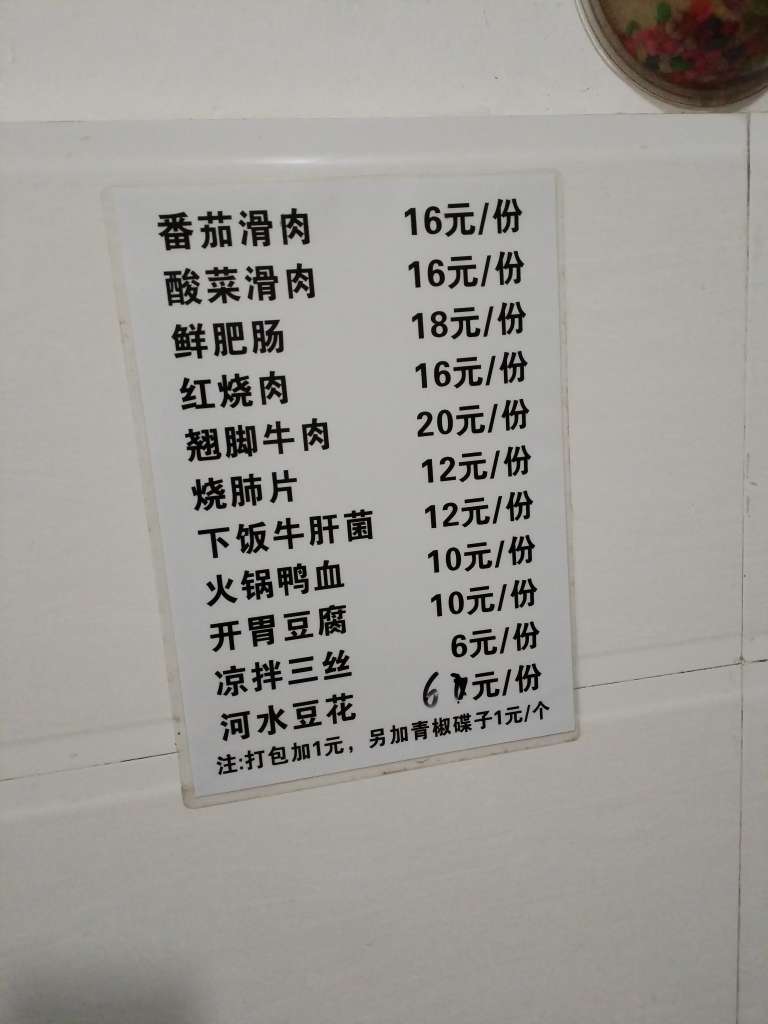 番茄滑肉 16元/份
酸菜滑肉 16元/份
鲜肥肠 18元/份
红烧肉 16元/份
翘脚牛肉 20元/份
烧肺片 12元/份
下饭牛肝菌 12元/份
火锅鸭血 10元/份
开胃豆腐 10元/份
凉拌三丝 6元/份
河水豆花 6元/份
注:打包加1元，另加青椒碟子1元/个